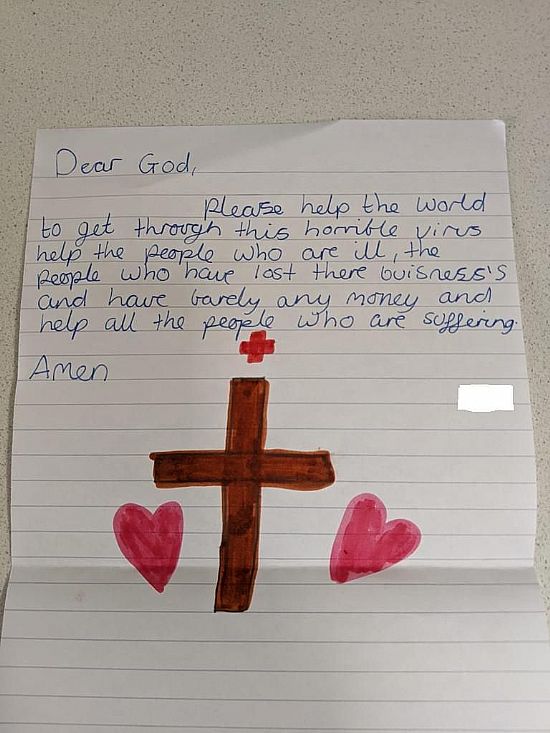 Dear God,
please help the world
to get through this horrible virus
help the people who are ill, the
people who have lost there buisness's
and have barely any money and
help all the people who are suffering.
Amen